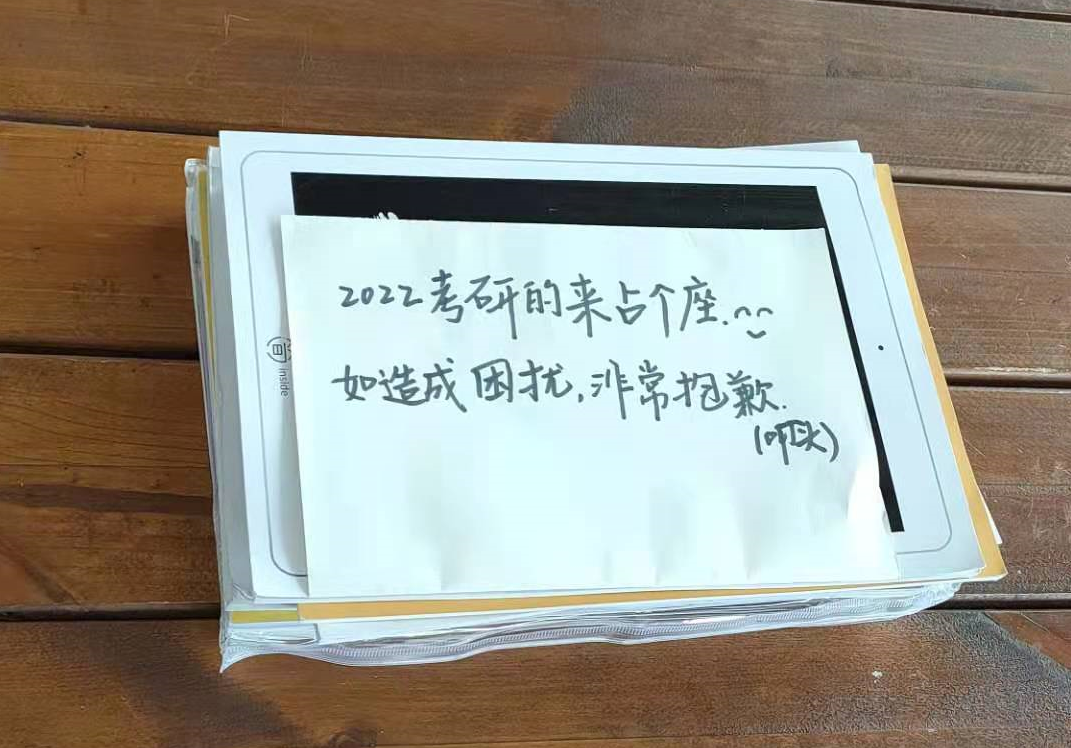 2022考研的来占个座.
如造成困扰,非常抱歉.
(叩头)
inside